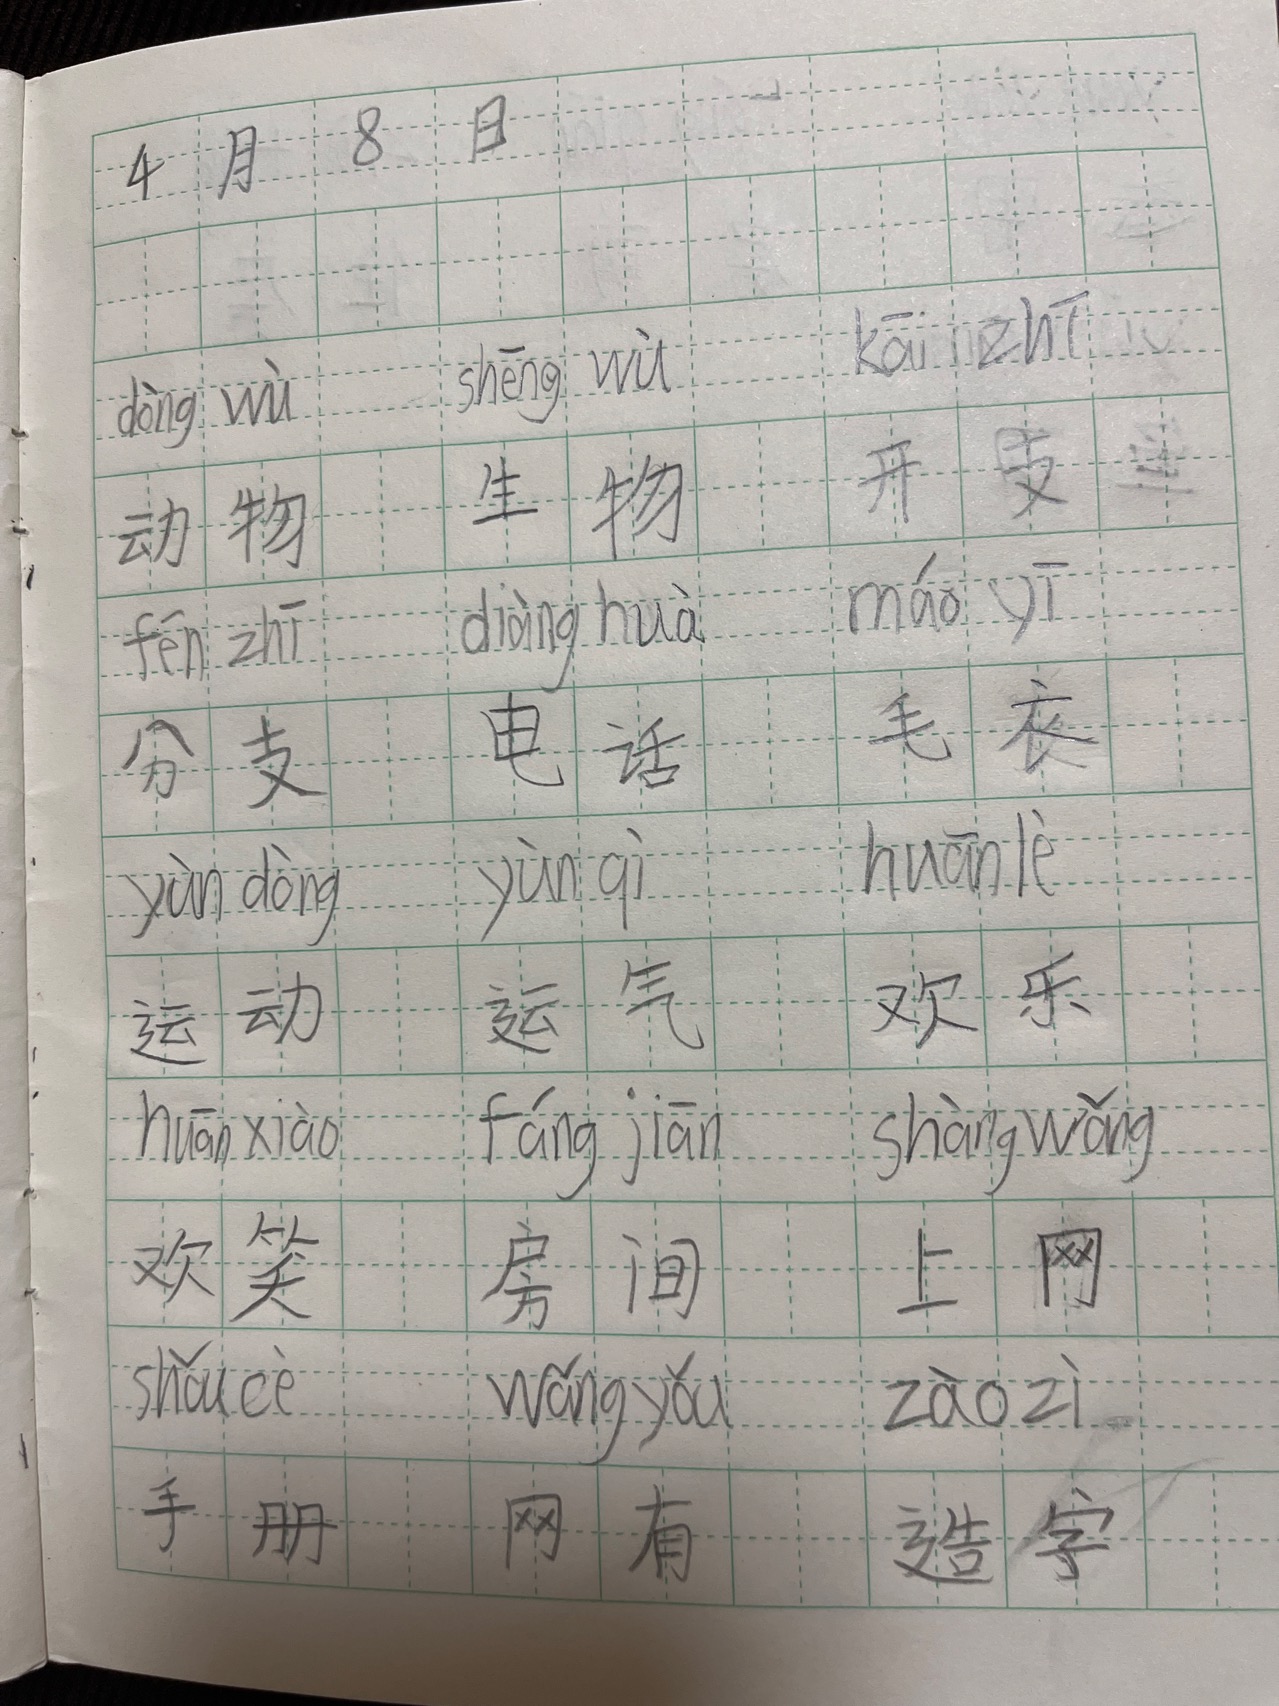 4 月 8 日
dòng wù shēng wù kāi zhī
动物 生物 开支
fēn zhī diàng huà máo yī
分支 电话 毛衣
yùn dòng yùn qì huān lè
运动 运气 欢乐
huān xiào fáng jiān shàng wǎng
欢笑 房间 上网
shǒu cè wǎng yǒu zào zì
手册 网有 造字